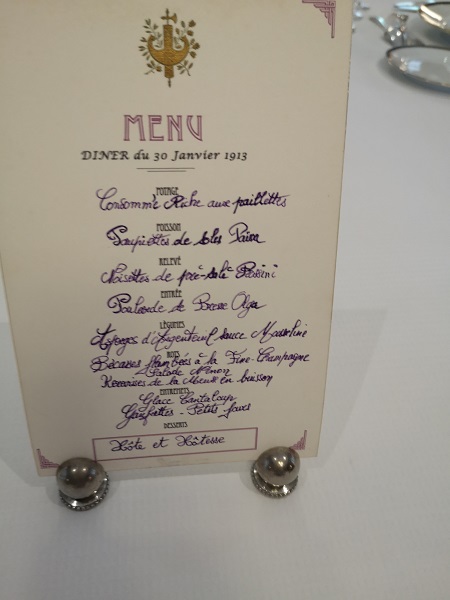 MENU
DINER du 30 Janvier 1913
POTAGE
Consommé Riche aux paillettes
POISSON
Paupiettes de soles Païva
RELEVÉ
Noisettes de pré-salé Rossini
ENTRÉE
Poularde de Bresse Olga
LÉGUMES
Asperges d'Argenteuil sauce Mousseline
ROTS
Bécasses flambées à la Fine-Champagne
Salade Menon
Ecrevisses de la Meuse en buisson
ENTREMETS
Glace Cantaloup
Gaufrettes - Petits fours
DESSERTS
Hôte et Hôtesse